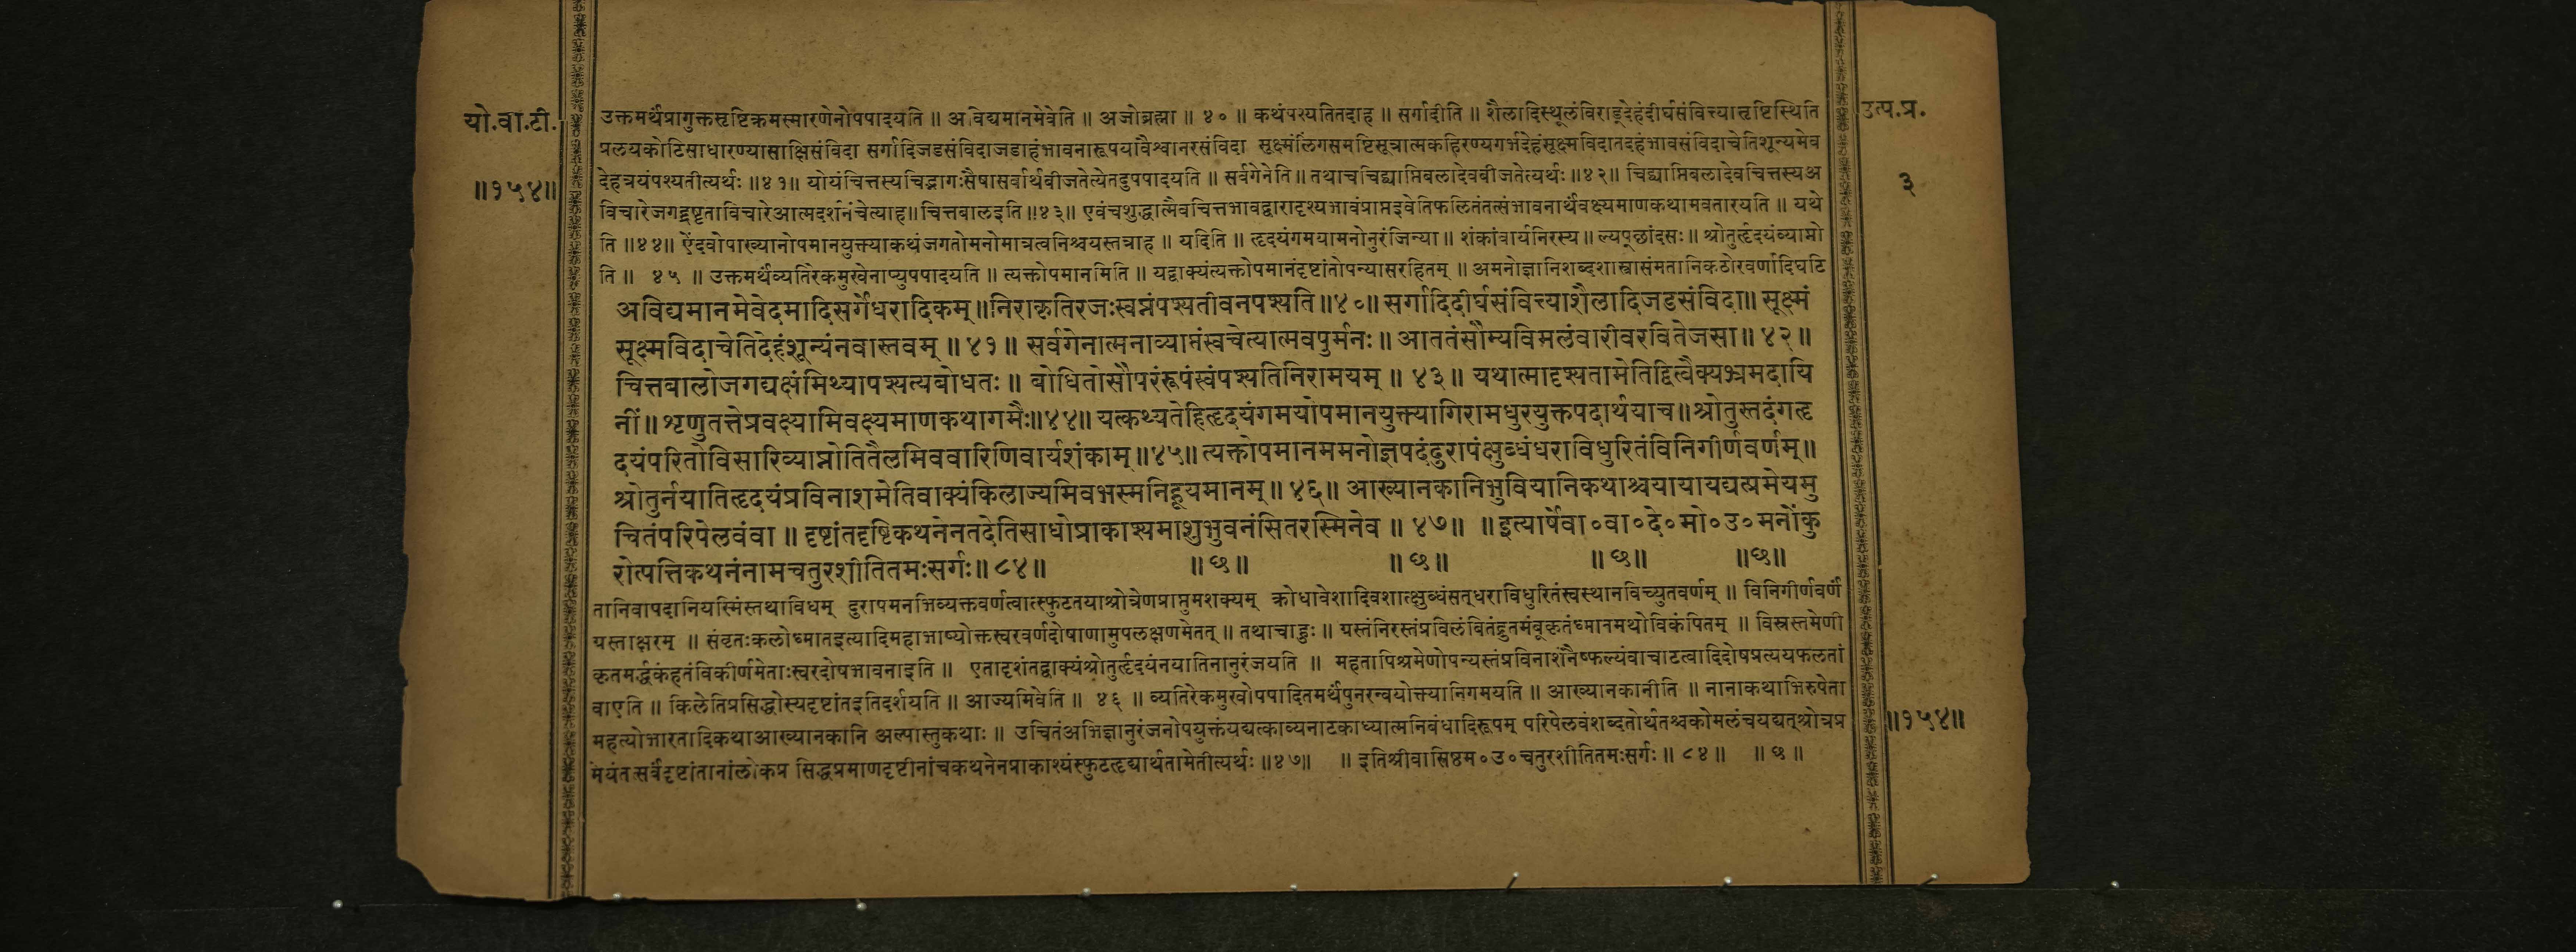 यो.वा.टी.
॥१५४॥
उत्प.प्र.
३
उक्तमर्थंप्रागुक्तसृष्टिक्रमस्मारणेनोपपादयति ॥ अविद्यमानमेवेति ॥ अजोब्रह्मा ॥ ४० ॥ कथंपश्यतितदाह ॥ सर्गादीति ॥ शैलादिस्थूलंविराड्देहंदीर्घसंवित्त्यासृष्टिस्थिति
प्रलयकोटिसाधारण्यासाक्षिसंविदा सर्गादिजडसंविदाजडाहंभावनारूपयावैश्वानरसंविदा सूक्ष्मंलिंगसमष्टिसूत्रात्मकहिरण्यगर्भदेहंसूक्ष्मविदातदहंभावसंविदाचेतिशून्यमेव
देहत्रयंपश्यतीत्यर्थः ॥४१॥ योयंचित्तस्यचिद्भागःसैषासर्वार्थबीजतेत्येतदुपपादयति ॥ सर्वगेनेति ॥ तथाचचिद्व्याप्तिबलादेवबीजतेत्यर्थः ॥४२॥ चिद्व्याप्तिबलादेवचित्तस्यअ
विचारेजगद्द्रष्टृताविचारेआत्मदर्शनंचेत्याह॥ चित्तबालइति ॥४३॥ एवंचशुद्धात्मैवचित्तभावद्वारादृश्यभावंप्राप्तइवेतिफलितंतत्संभावनार्थंवक्ष्यमाणकथामवतारयति ॥ यथे
ति ॥४४॥ ऐंदवोपाख्यानोपमानयुक्त्याकथंजगतोमनोमात्रत्वनिश्चयस्तत्राह ॥ यदिति ॥ हृदयंगमयामनोनुरंजिन्या ॥ शंकांवार्यनिरस्य ॥ ल्यप्छांदसः ॥ श्रोतुर्हृदयंव्याप्नो
ति ॥ ४५ ॥ उक्तमर्थंव्यतिरेकमुखेनाप्युपपादयति ॥ त्यक्तोपमानमिति ॥ यद्वाक्यंत्यक्तोपमानंदृष्टांतोपन्यासरहितम् ॥ अमनोज्ञानिशब्दशास्त्रासंमतानिकठोरवर्णादिघटि
अविद्यमानमेवेदमादिसर्गेधरादिकम्॥निराकृतिरजःस्वप्नंपश्यतीवनपश्यति॥४०॥ सर्गादिदीर्घसंवित्त्याशैलादिजडसंविदा॥ सूक्ष्मं
सूक्ष्मविदाचेतिदेहंशून्यंनवास्तवम् ॥ ४१॥ सर्वगेनात्मनाव्याप्तंस्वचेत्यात्मवपुर्मनः ॥ आततंसौम्यविमलंवारीवरवितेजसा॥ ४२॥
चित्तबालोजगद्यक्षंमिथ्यापश्यत्यबोधतः ॥ बोधितोसौपरंरूपंस्वंपश्यतिनिरामयम् ॥ ४३॥ यथात्मादृश्यतामेतिद्वित्वैक्यभ्रमदायि
नीं॥ शृणुतत्तेप्रवक्ष्यामिवक्ष्यमाणकथागमैः॥४४॥ यत्कथ्यतेहिहृदयंगमयोपमानयुक्त्यागिरामधुरयुक्तपदार्थयाच॥ श्रोतुस्तदंगहृ
दयंपरितोविसारिव्याप्नोतितैलमिववारिणिवार्यशंकाम्॥४५॥ त्यक्तोपमानममनोज्ञपदंदुरापंक्षुब्धंधराविधुरितंविनिगीर्णवर्णम्॥
श्रोतुर्नयातिहृदयंप्रविनाशमेतिवाक्यंकिलाज्यमिवभस्मनिहूयमानम्॥ ४६॥ आख्यानकानिभुवियानिकथाश्चयायायद्यत्प्रमेयमु
चितंपरिपेलवंवा ॥ दृष्टांतदृष्टिकथनेनतदेतिसाधोप्राकाश्यमाशुभुवनंसितरस्मिनेव ॥ ४७॥ ॥इत्यार्षेवा०वा०दे०मो०उ०मनोंकु
रोत्पत्तिकथनंनामचतुरशीतितमःसर्गः॥८४॥ ॥छ॥ ॥छ॥ ॥छ॥ ॥छ॥
तानिवापदानियस्मिंस्तथाविधम् दुरापमनभिव्यक्तवर्णत्वात्स्फुटतयाश्रोत्रेणप्राप्तुमशक्यम् क्रोधावेशादिवशात्क्षुब्धंसत्धराविधुरितंस्वस्थानविच्युतवर्णम् ॥ विनिगीर्णवर्णं
ग्रस्ताक्षरम् ॥ संवृतःकलोध्मातइत्यादिमहाभाष्योक्तस्वरवर्णदोषाणामुपलक्षणमेतत् ॥ तथाचाहुः ॥ ग्रस्तंनिरस्तंप्रविलंबितंद्रुतमंबूकृतंध्मानमथोविकंपितम् ॥ विस्रस्तमेणी
कृतमर्द्धकंहतंविकीर्णमेताःस्वरदोषभावनाइति ॥ एतादृशंतद्वाक्यंश्रोतुर्हृदयंनयातिनानुरंजयति ॥ महतापिश्रमेणोपन्यस्तंप्रविनाशंनैष्फल्यंवाचाटत्वादिदोषप्रत्ययफलतां
वाएति ॥ किलेतिप्रसिद्धोस्यदृष्टांतइतिदर्शयति ॥ आज्यमिवेति ॥ ४६ ॥ व्यतिरेकमुखोपपादितमर्थंपुनरन्वयोक्त्यानिगमयति ॥ आख्यानकानीति ॥ नानाकथाभिरुपेता
महत्योभारतादिकथाआख्यानकानि अल्पास्तुकथाः ॥ उचितंअभिज्ञानुरंजनोपयुक्तंयद्यत्काव्यनाटकाध्यात्मनिबंधादिरूपम् परिपेलवंशब्दतोर्थतश्चकोमलंचयद्यत्श्रोत्रप्र
मेयंत सर्वंदृष्टांतानांलोकप्र सिद्धप्रमाणदृष्टीनांचकथनेनप्राकाश्यंस्फुटहृद्यार्थतामेतीत्यर्थः ॥४७॥ ॥ इतिश्रीवासिष्ठम०उ०चतुरशीतितमःसर्गः॥ ८४॥ ॥छ॥
॥१५४॥